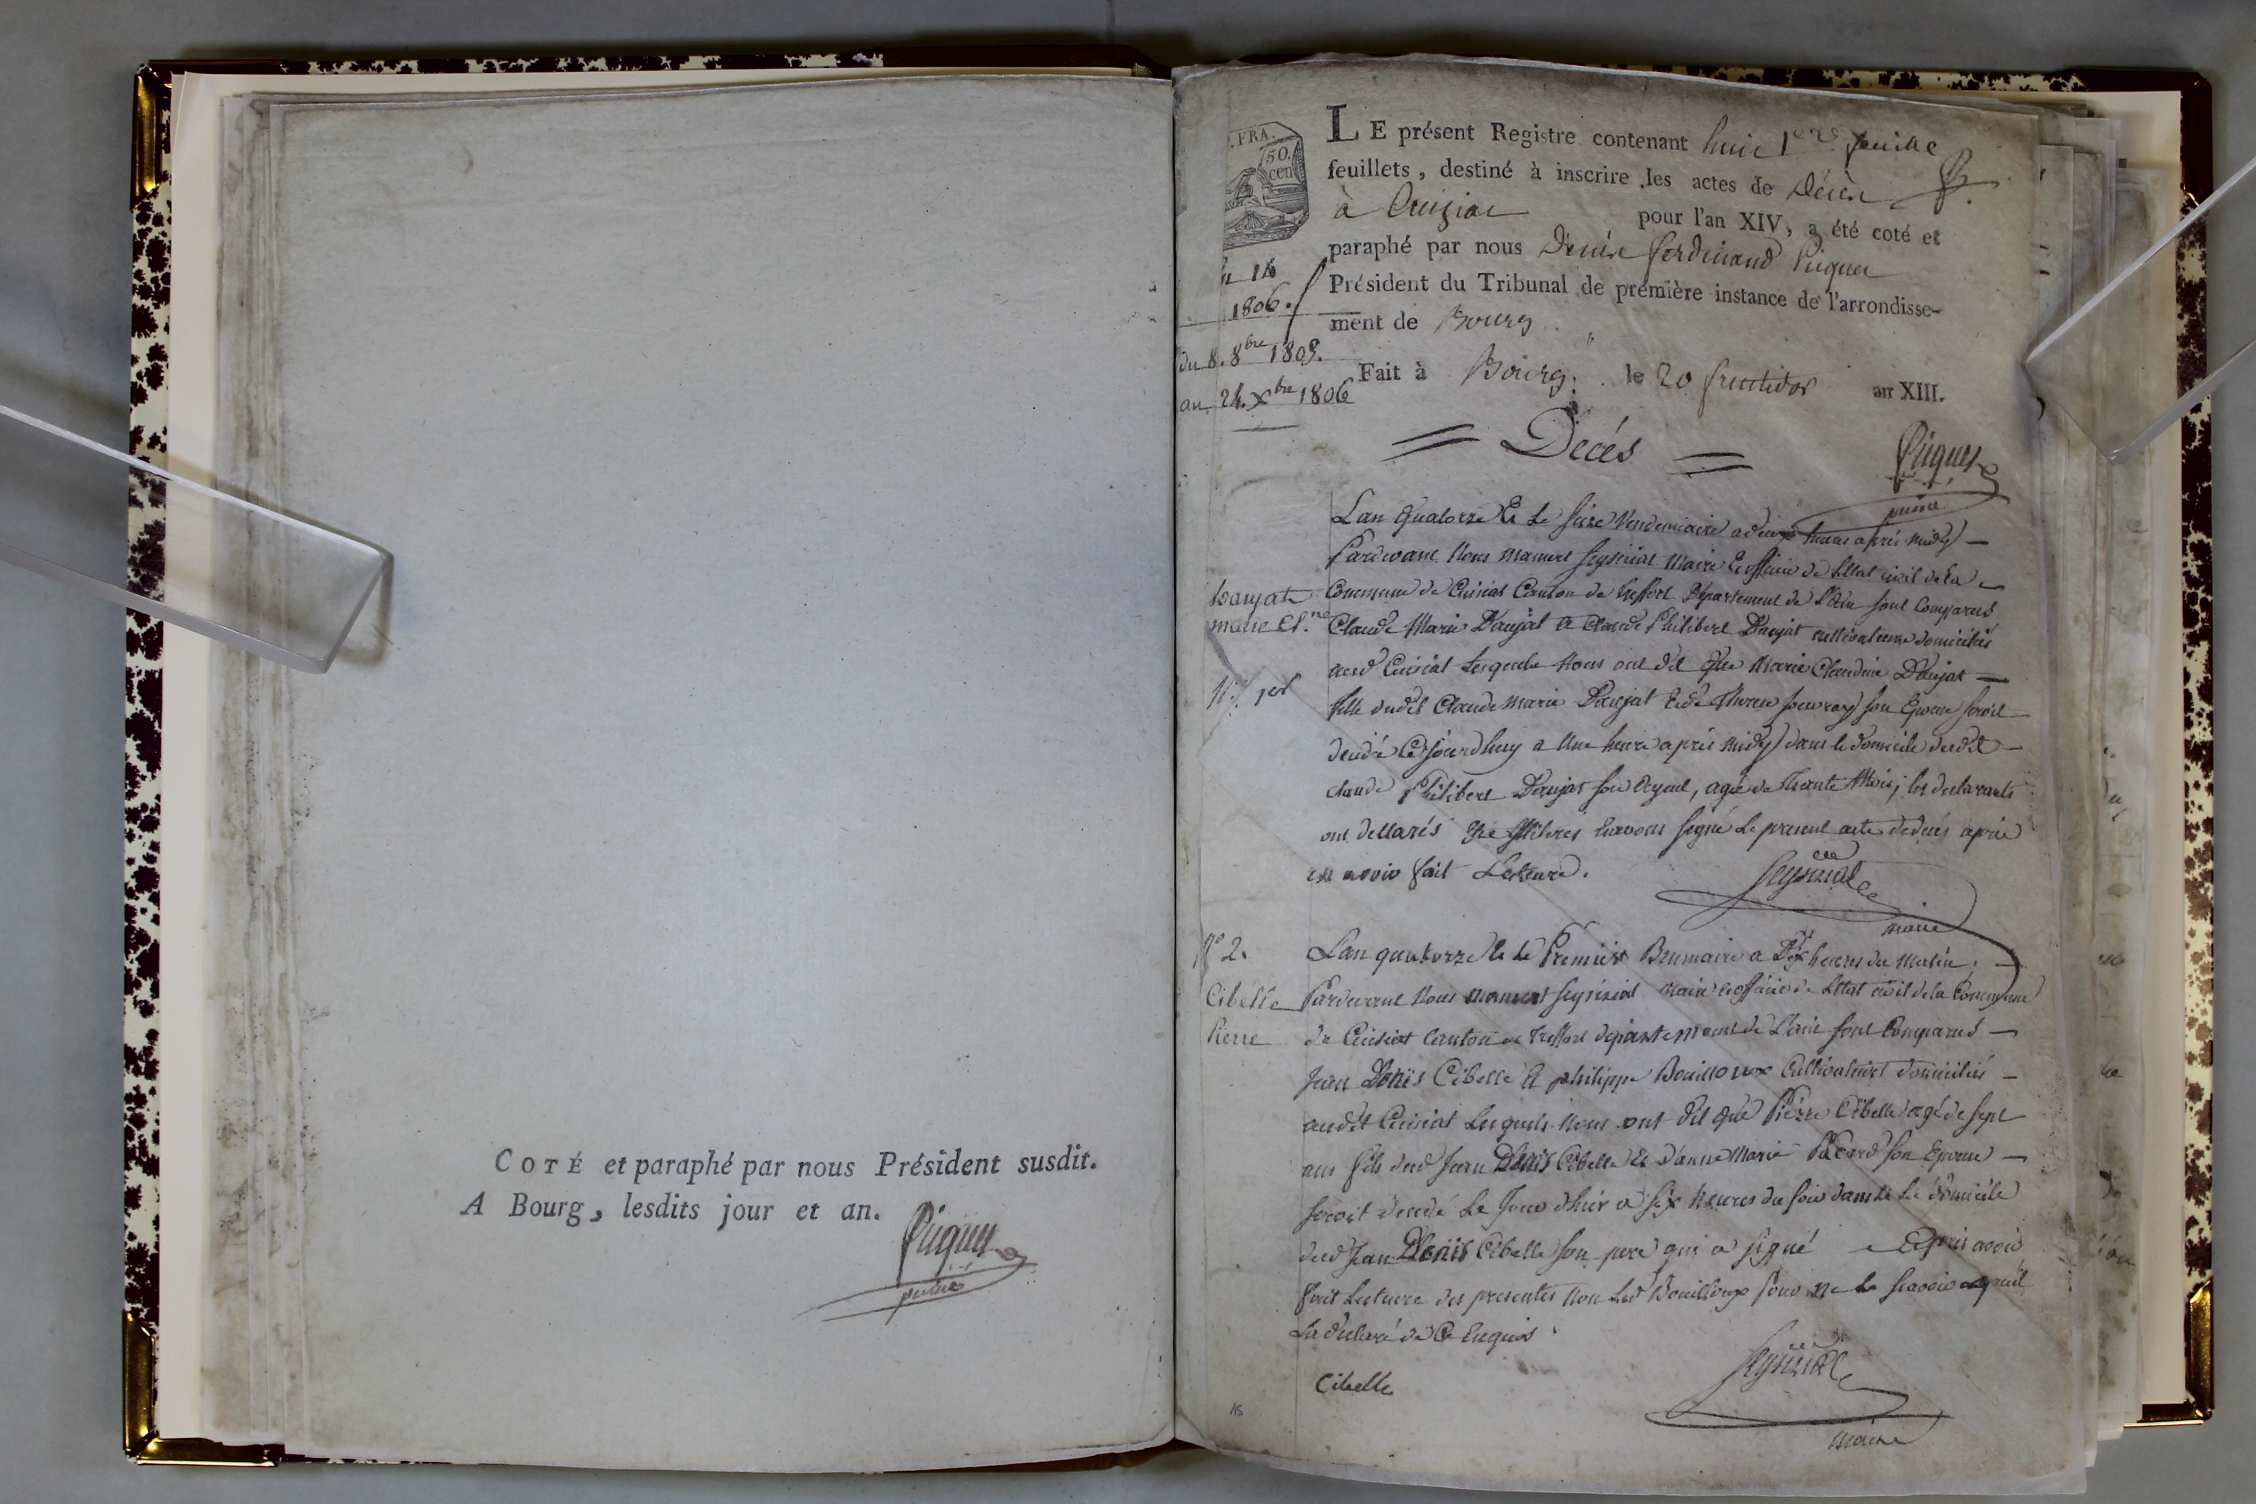 COTÉ et paraphé par nous Président susdit.
A Bourg, lesdits jour et an.
Piquet
puiné
. FRA.
50.
cen
LE présent Registre contenant huit 1ers feuille
feuillets, destiné à inscrire les actes de Décès
à Cuiziat pour l'an XIV, a été coté et
paraphé par nous Denis ferdinand Piquet
Président du Tribunal de première instance de l'arrondisse-
ment de Bourg
Fait à Bourg. le 20 fructidor an XIII.
an 14
1806.
du 8. 8bre 1805.
au 24. Xbre 1806
= Decés =
Piquet
puiné
Daujat
marie Cl.ne
N.o 1er
Lan Quatorze Et Le seize Vendemiaire a deux heures après midy —
Pardevant Nous manuel seyssiat Maire Et officier de Lettat civil de La
Commune de Cuisiat Canton de treffort Département de L'Ain sont Comparus
Claude Marie Daujat et Claude Philibert Daujat cultivateurs domiciliés
aud Cuisiat Lesquels Nous ont dit Que Marie Claudine Daujat —
fille dudit Claude Marie Daujat Et de son Epouse seroit
decedé Cejourdhuy a Une heure après midy dans le domicile dudit —
claude Philibert Daujat son ayeul, agée de Trente Mois; les declarants
ont dellarés Etre Illiterés Euavons signé Le present acte de decés après
en avoir fait Lecture.
Seyssiat
maire
N.o 2.
Cibelle
Pierre
Lan quatorze Et Le Premier Brumaire a Dix heures du Matin. —
Pardevant Nous manuel seyssiat maire Et officier de Lettat civil de la Commune
de Cuisiat Canton de treffort departement de L'ain sont Comparus —
Jean Denis Cibelle Et philippe Bouilloux Cultivateurs domiciliés —
audit Cuisiat Lesquels Nous ont dit que Pierre Cibelle agé de sept
ans fils dud Jean Denis Cibelle Et d'anne Marie Pacard son Epouse —
seroit decedé Le Jour dhier a six heures du soir dans Le domicile
dud Jean Denis Cibelle son pere qui a signé Apres avoir
fait Lecture des presentes Non Led Bouilloux pour ne le scavoir ainsi quil
La declaré de Ce Enquis.
Cibelle
Seyssiat
Maire